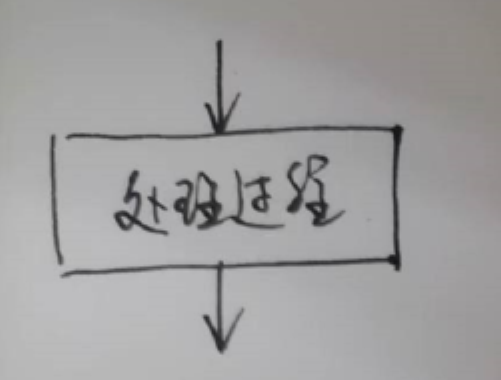 处理过程